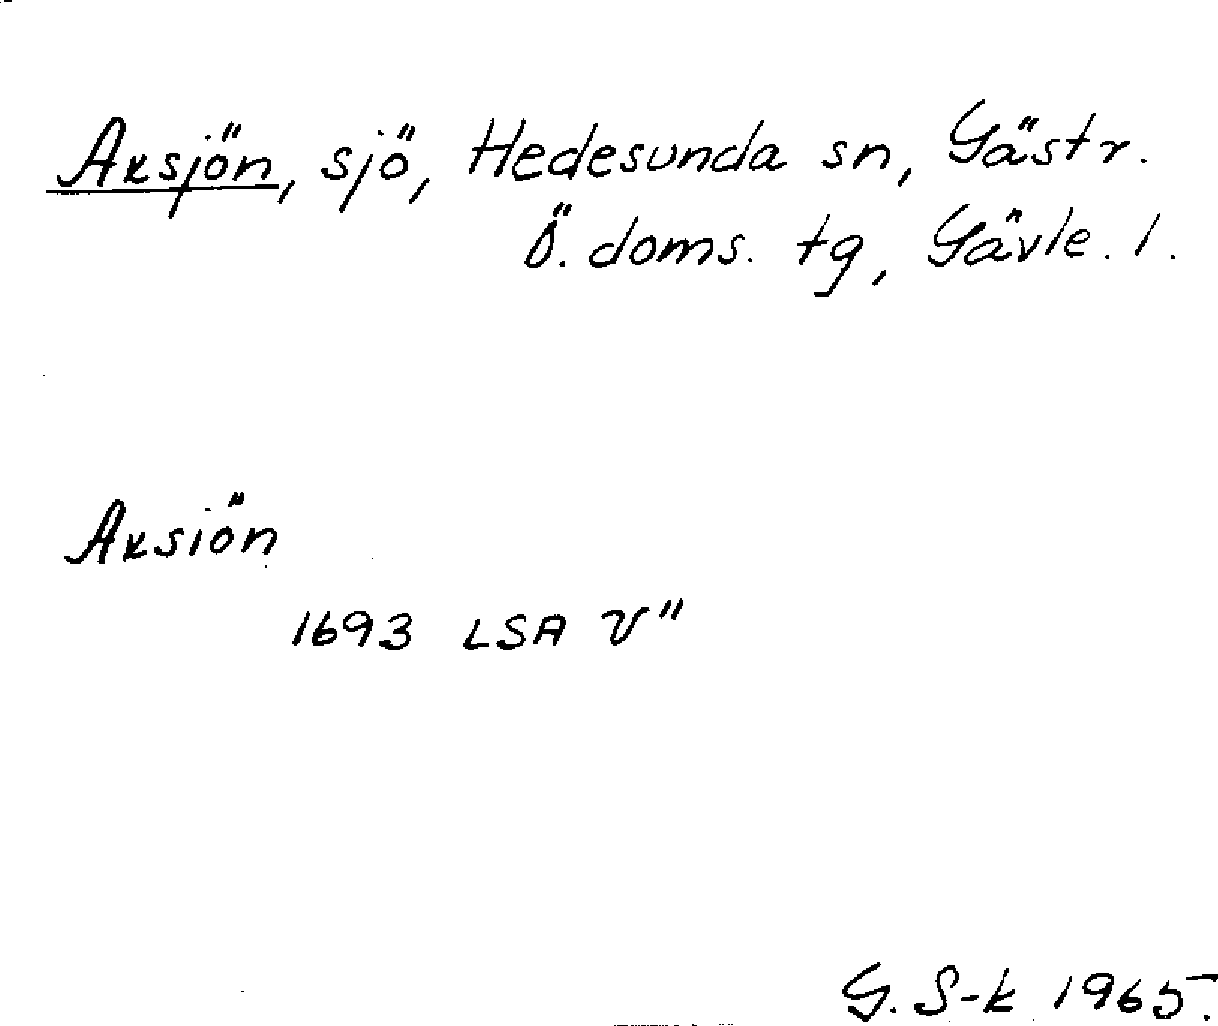 Aksjön, sjö, Hedesunda sn, Gästr.
Ö. doms. tg, Gävle. l.
Aksiön
1693 LSA V"
G. S-k 1965.